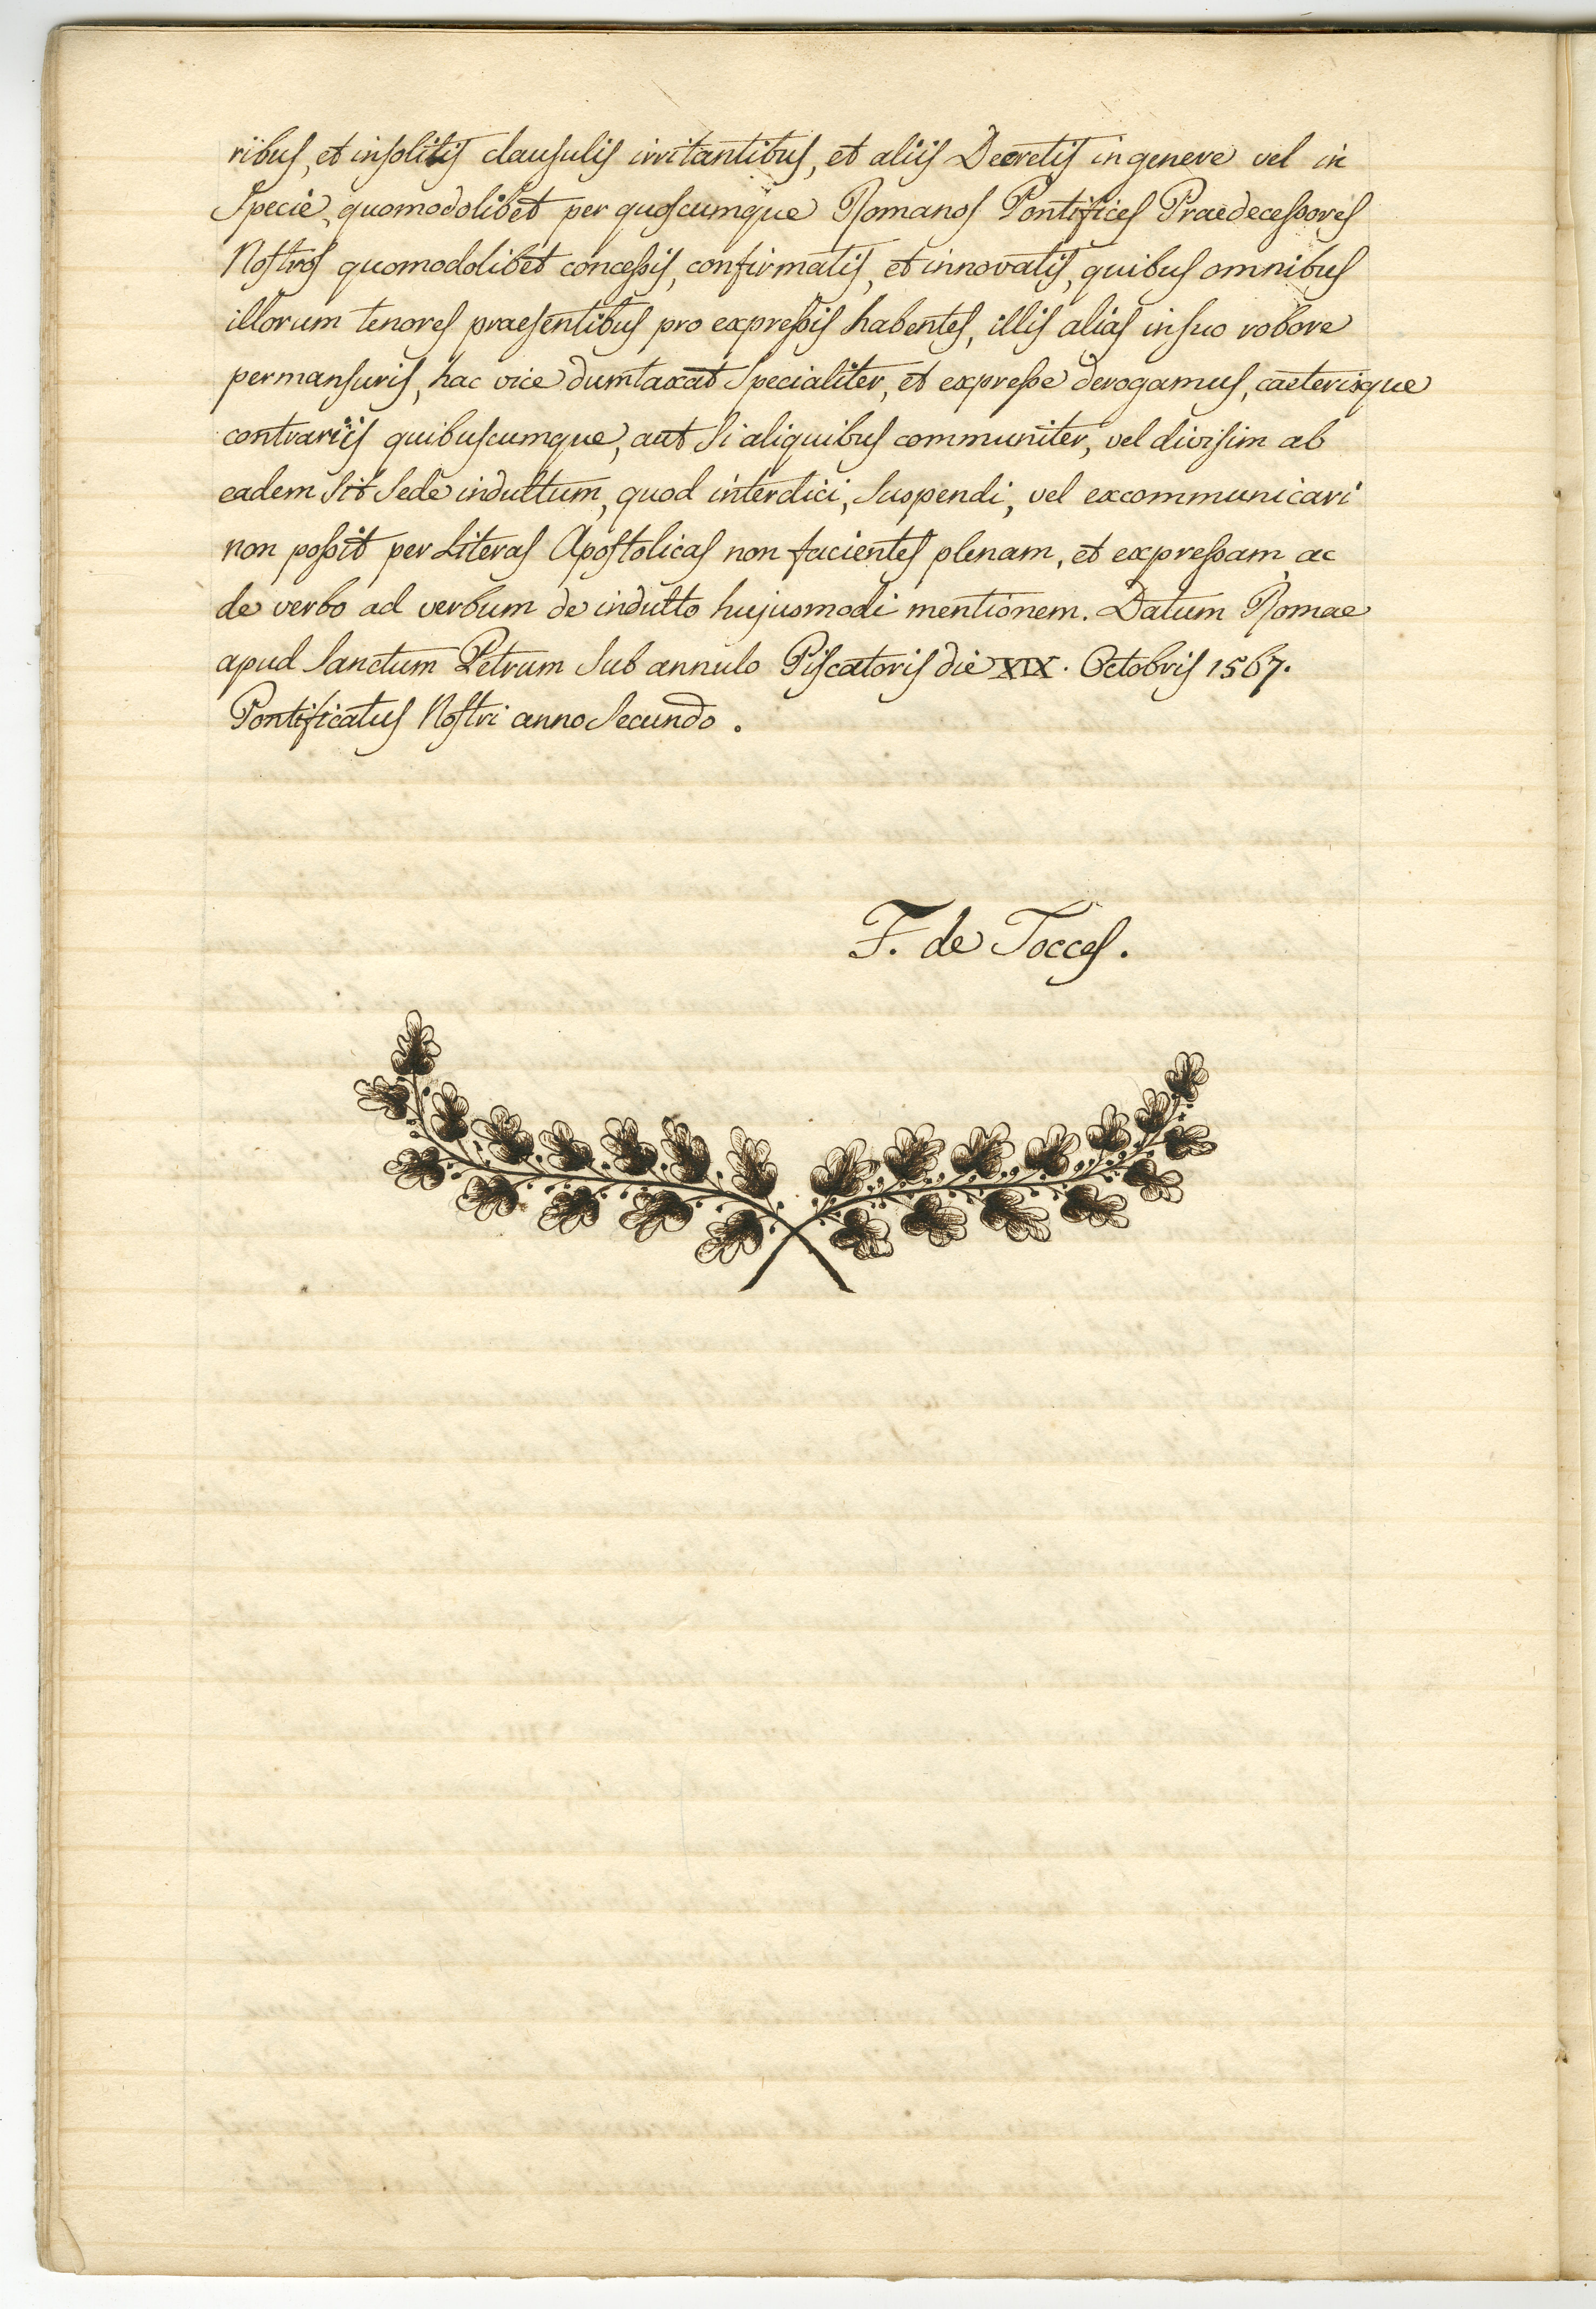 ribus, et insolitis clausulis irritantibus, et aliis Decretis in genere vel in
Specie, quomodolibet per quoscumque Romanos Pontifices Praedecessores
Nostros quomodolibet concessis, confirmatis, et innovatis, quibus omnibus
illorum tenores praesentibus pro expressis habentes, illis alias in suo robore
permansuris, hac vice dumtaxat Specialiter, et expresse derogamus, caeterisque
contrariis quibuscumque, aut Si aliquibus communiter, vel divisim ab
eadem Sit Sede indultum, quod interdici, Suspendi, vel excommunicari
non possit per Literas Apostolicas non facientes plenam, et expressam, ac
de verbo ad verbum de indulto hujusmodi mentionem. Datum Romae
apud Sanctum Petrum Sub annulo Piscatoris die XIX. Octobris 1567.
Pontificatus Nostri anno Secundo.
F. de Tocces.